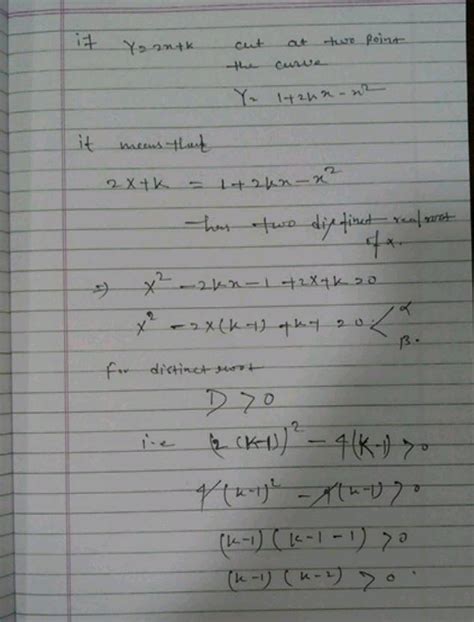 if Y=2x+k cut at two point
the curve
Y= 1+2kx-x²
it means that
2x+k = 1+2kx-x²
has two distinct real root
of x.
⇒ x²-2kx-1+2x+k=0
x²-2x(k-1)+k-1=0 < α
β.
for distinct root
D>0
i.e (2(k-1))²-4(k-1)>0
4(k-1)²-4(k-1)>0
(k-1)(k-1-1)>0
(k-1)(k-2)>0.